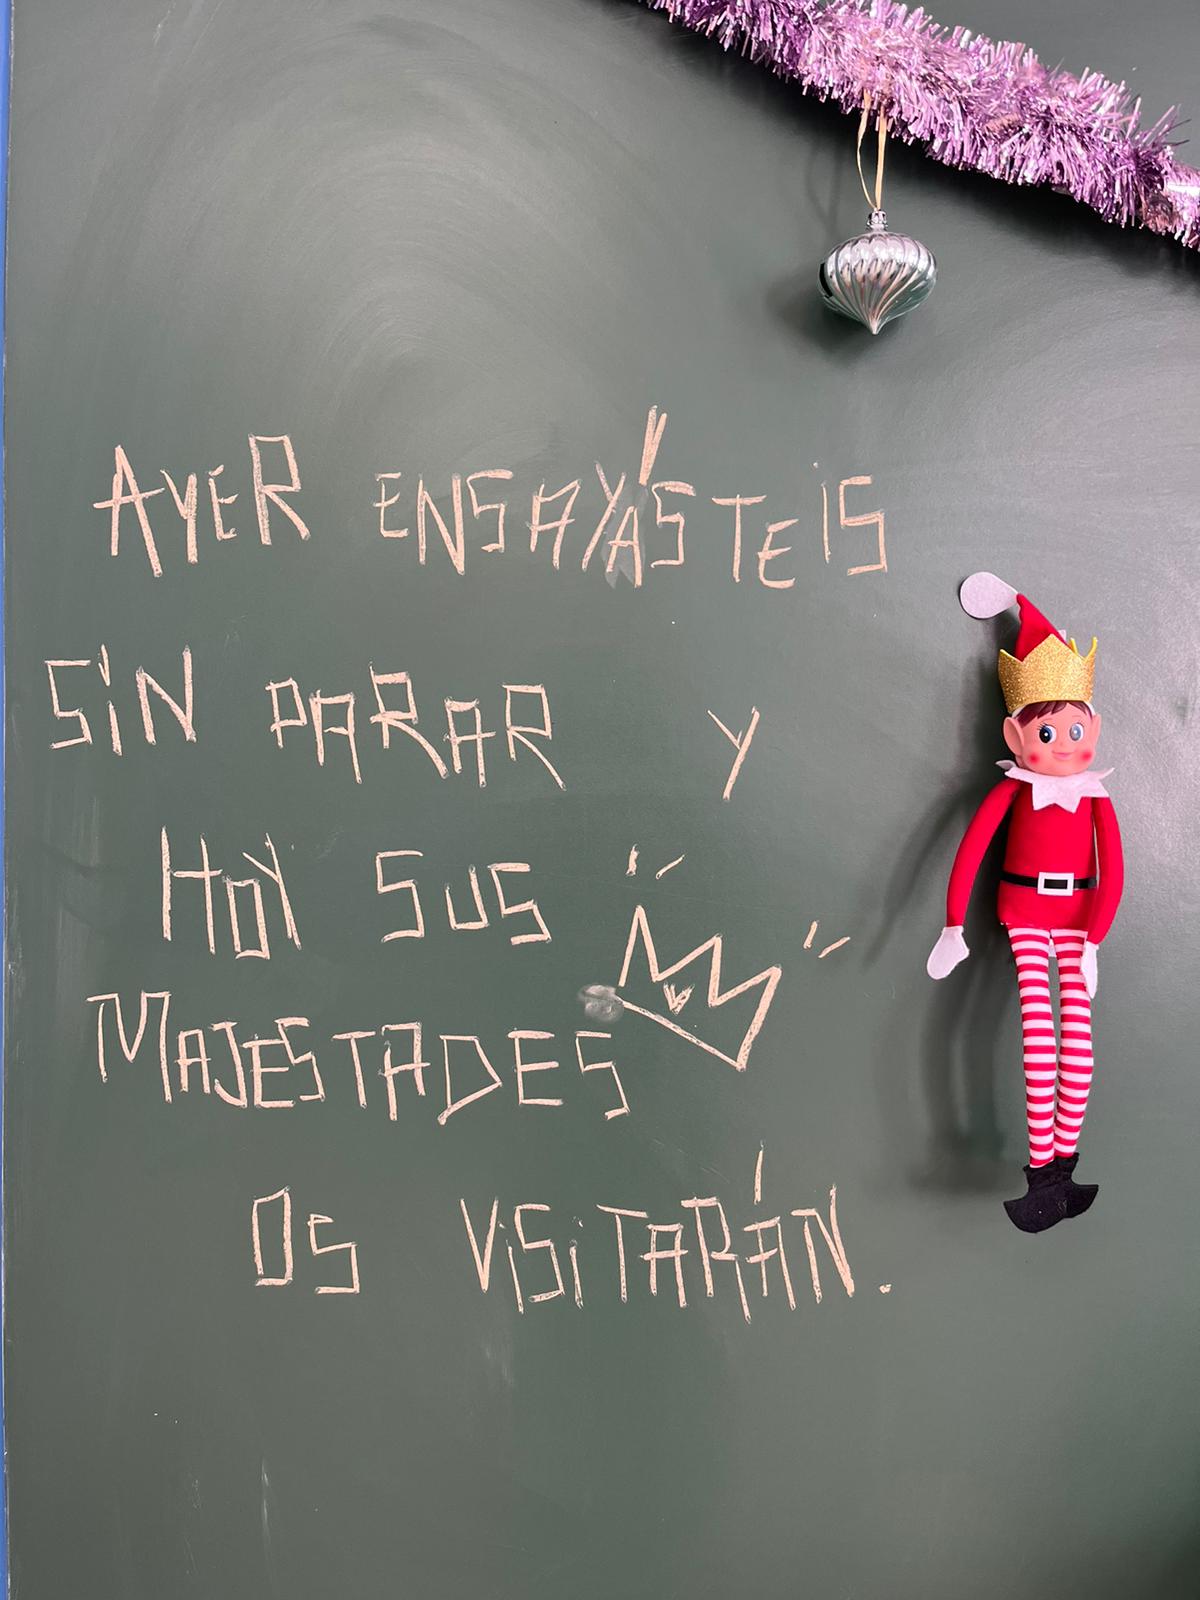 AYER ENSAYÁSTEIS
SIN PARAR Y
HOY SUS
MAJESTADES
OS VISITARÁN.